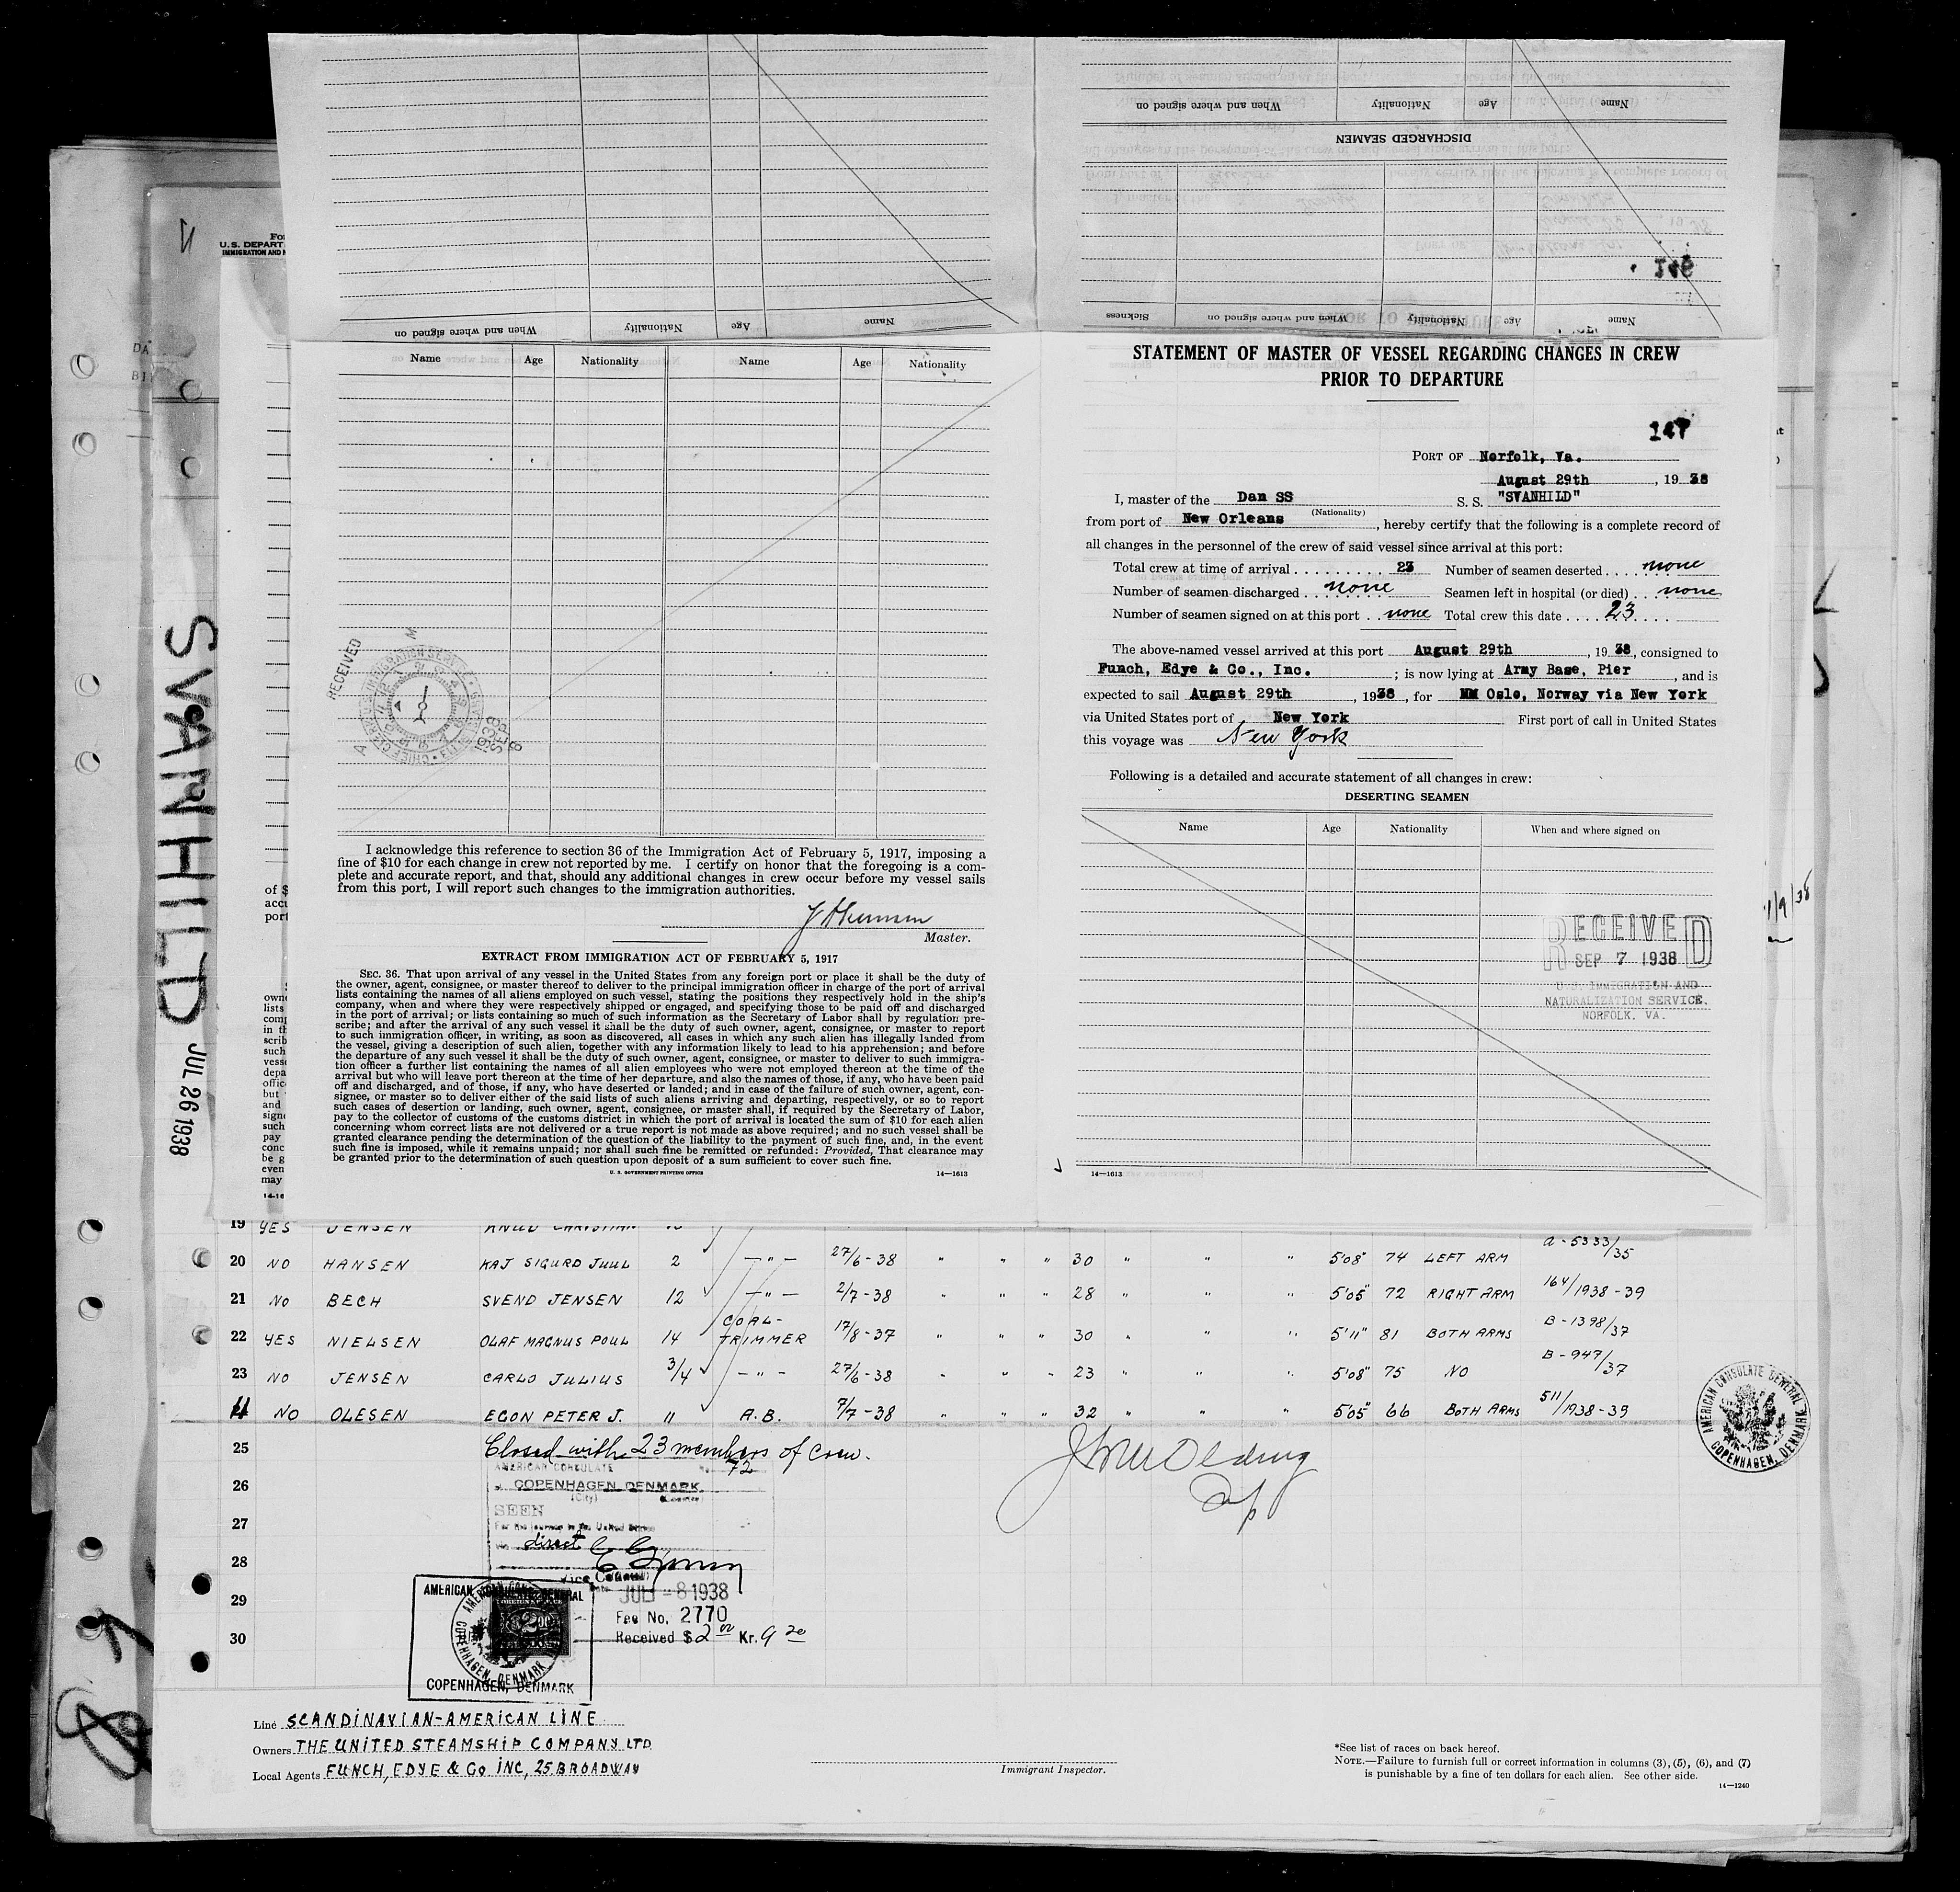 When and where signed on Nationality Age Name
Name Age Nationality When and where signed on
DISCHARGED SEAMEN
Name Age Nationality When and where signed on Sickness
Name Age Nationality Name Age Nationality
RECEIVED
SEP 8 1938
I acknowledge this reference to section 36 of the Immigration Act of February 5, 1917, imposing a
fine of $10 for each change in crew not reported by me. I certify on honor that the foregoing is a com-
plete and accurate report, and that, should any additional changes in crew occur before my vessel sails
from this port, I will report such changes to the immigration authorities.
Master.
EXTRACT FROM IMMIGRATION ACT OF FEBRUARY 5, 1917
SEC. 36. That upon arrival of any vessel in the United States from any foreign port or place it shall be the duty of
the owner, agent, consignee, or master thereof to deliver to the principal immigration officer in charge of the port of arrival
lists containing the names of all aliens employed on such vessel, stating the positions they respectively hold in the ship's
company, when and where they were respectively shipped or engaged, and specifying those to be paid off and discharged
in the port of arrival; or lists containing so much of such information as the Secretary of Labor shall by regulation pre-
scribe; and after the arrival of any such vessel it shall be the duty of such owner, agent, consignee, or master to report
to such immigration officer, in writing, as soon as discovered, all cases in which any such alien has illegally landed from
the vessel, giving a description of such alien, together with any information likely to lead to his apprehension; and before
the departure of any such vessel it shall be the duty of such owner, agent, consignee, or master to deliver to such immigra-
tion officer a further list containing the names of all alien employees who were not employed thereon at the time of the
arrival but who will leave port thereon at the time of her departure, and also the names of those, if any, who have been paid
off and discharged, and of those, if any, who have deserted or landed; and in case of the failure of such owner, agent, con-
signee, or master so to deliver either of the said lists of such aliens arriving and departing, respectively, or so to report
such cases of desertion or landing, such owner, agent, consignee, or master shall, if required by the Secretary of Labor,
pay to the collector of customs of the customs district in which the port of arrival is located the sum of $10 for each alien
concerning whom correct lists are not delivered or a true report is not made as above required; and no such vessel shall be
granted clearance pending the determination of the question of the liability to the payment of such fine, and, in the event
such fine is imposed, while it remains unpaid; nor shall such fine be remitted or refunded: Provided, That clearance may
be granted prior to the determination of such question upon deposit of a sum sufficient to cover such fine.
U. S. GOVERNMENT PRINTING OFFICE 14—1613
STATEMENT OF MASTER OF VESSEL REGARDING CHANGES IN CREW
PRIOR TO DEPARTURE
147
PORT OF Norfolk, Va.
August 29th, 1938
I, master of the Dan SS S. S. "SVANHILD"
(Nationality)
from port of New Orleans, hereby certify that the following is a complete record of
all changes in the personnel of the crew of said vessel since arrival at this port:
Total crew at time of arrival 23 Number of seamen deserted none
Number of seamen discharged none Seamen left in hospital (or died) none
Number of seamen signed on at this port none Total crew this date 23
The above-named vessel arrived at this port August 29th, 1938, consigned to
Funch, Edye & Co., Inc.; is now lying at Army Base, Pier, and is
expected to sail August 29th, 1938, for MM Oslo, Norway via New York
via United States port of New York First port of call in United States
this voyage was New York
Following is a detailed and accurate statement of all changes in crew:
DESERTING SEAMEN
Name Age Nationality When and where signed on
RECEIVED
SEP 7 1938
U.S. IMMIGRATION AND
NATURALIZATION SERVICE.
NORFOLK, VA.
14—1613
SVANHILD JUL 26 1938
U.S. DEPART
IMMIGRATION AND
19 YES JENSEN KNUD CHRISTIAN
20 NO HANSEN KAJ SIGURD JUUL 2 —"— 27/6-38 " " " 30 " " " 5'08" 74 LEFT ARM a-5333/35
21 NO BECH SVEND JENSEN 12 —"— 2/7-38 " " " 28 " " " 5'05" 72 RIGHT ARM 164/1938-39
22 YES NIELSEN OLAF MAGNUS POUL 14 COAL-TRIMMER 17/8-37 " " " 30 " " " 5'11" 81 BOTH ARMS B-1398/37
23 NO JENSEN CARLO JULIUS 3/4 —"— 27/6-38 " " " 23 " " " 5'08" 75 NO B-947/37
NO OLESEN EGON PETER J. 11 A.B. 7/7-38 " " " 32 " " " 5'05" 66 BOTH ARMS 511/1938-39
25 Closed with 23 members of crew.
26
27
28
29
30
AMERICAN CONSULATE No. 72
COPENHAGEN, DENMARK.
(City) (Country)
SEEN
For the journey to the United States
direct
Vice Consul
JUL -8 1938
Fee No. 2770
Received $2.00 Kr. 9 20
AMERICAN CONSULATE GENERAL
COPENHAGEN, DENMARK
AMERICAN CONSULATE GENERAL
COPENHAGEN, DENMARK
Line SCANDINAVIAN-AMERICAN LINE
Owners THE UNITED STEAMSHIP COMPANY LTD
Local Agents FUNCH, EDYE & Co INC, 25 BROADWAY
Immigrant Inspector.
*See list of races on back hereof.
NOTE.—Failure to furnish full or correct information in columns (3), (5), (6), and (7)
is punishable by a fine of ten dollars for each alien. See other side.
14—1240